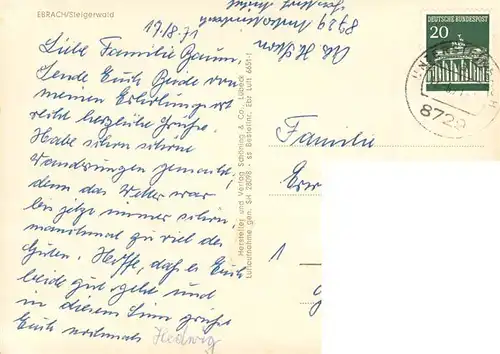 EBRACH/Steigerwald
19.8.71
Liebe Familie Baum.
Sende Euch Beide von
meinem Erholungsort
recht herzliche Grüße.
Habe schon schöne
Wanderungen gemacht,
denn das Wetter war
bis jetzt immer schön,
manchmal zu viel des
Guten. Hoffe, daß es Euch
beide gut geht und
in diesem Sinn grüßt
Euch nochmals Hedwig
8729
Hersteller und Verlag Schöning & Co., Lübeck
Luftaufnahme gen. SH 28098 · ss Bestellnr. Ebr Luft 6651-1
DEUTSCHE BUNDESPOST
20
8729
Familie
1